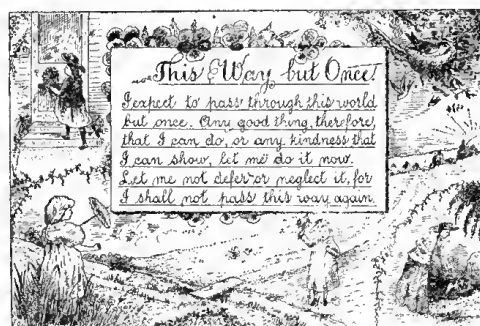 This Way but Once!
I expect to pass through this world
but once. Any good thing, therefore,
that I can do, or any kindness that
I can show, let me do it now.
Let me not defer or neglect it, for
I shall not pass this way again.